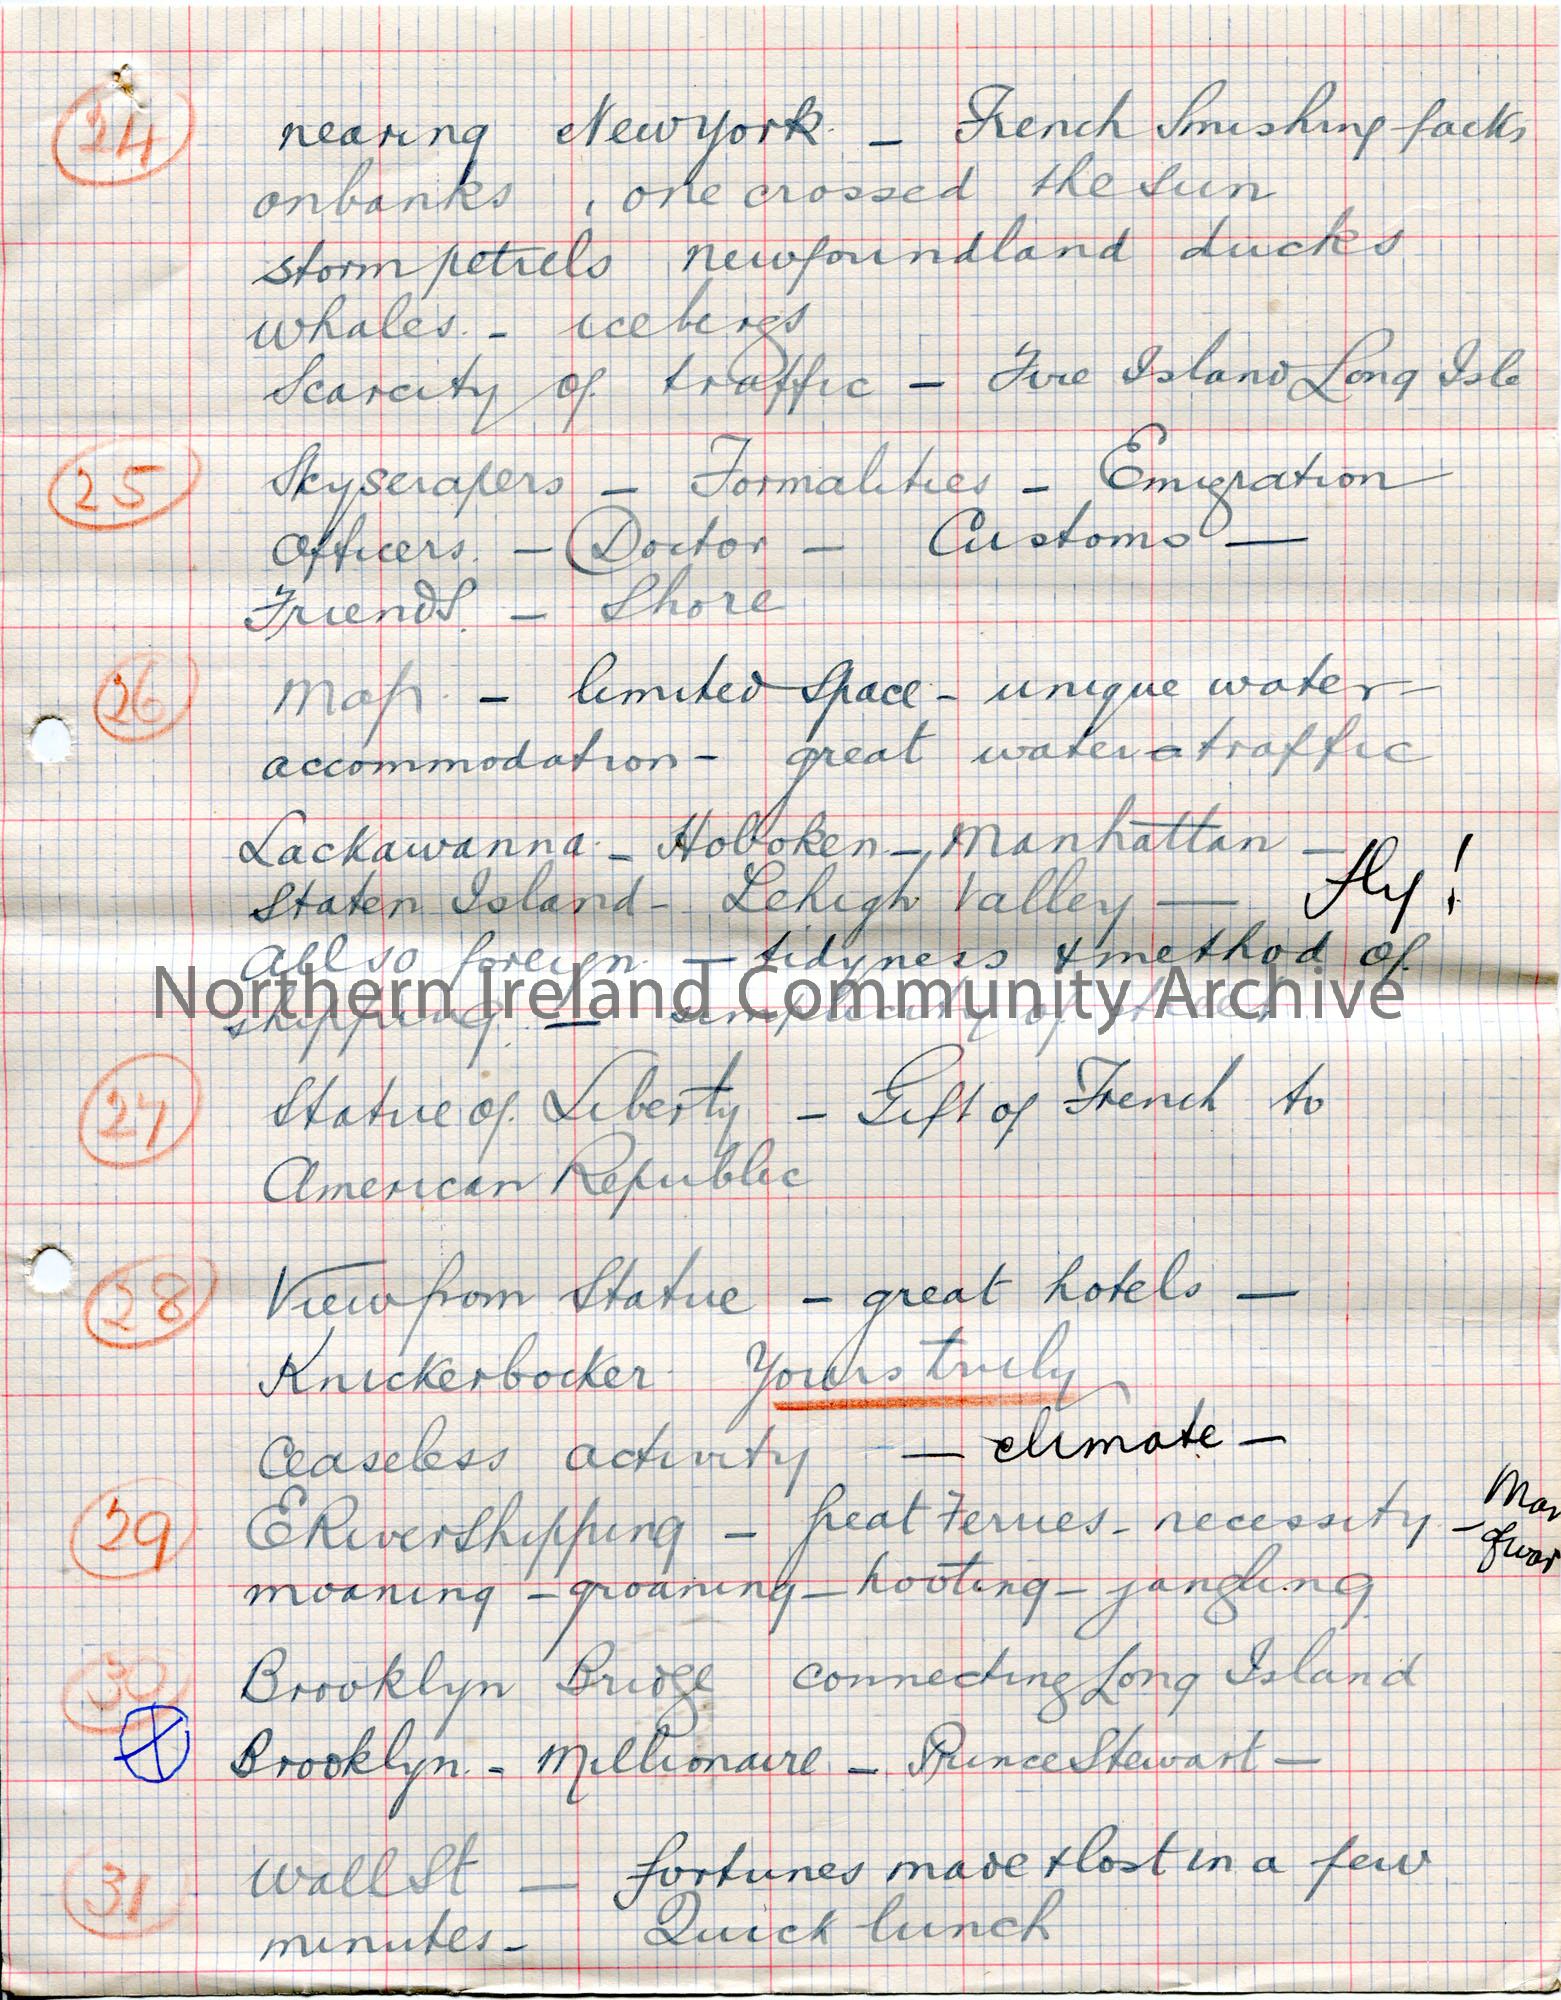 24 nearing New York. – French Smishing facks
on banks, one crossed the sun
storm petrels newfoundland ducks
whales. – icebergs
Scarcity of traffic – Fire Island Long Isle
25 Skyscrapers – Formalities – Emigration
Officers. – Doctor – Customs —
Friends. – Shore
26 Map. – limited space – unique water–
accommodation – great water-traffic
Lackawanna. – Hoboken – Manhattan –
Staten Island – Lehigh Valley — fly!
all so foreign. – tidyness & method of
Northern Ireland Community Archive
shipping. – simplicity of
27 Statue of Liberty – Gift of French to
American Republic
28 View from Statue – great hotels —
Knickerbocker Yours truly
Ceaseless activity — climate –
29 E River Shipping – great Ferries – necessity – Man
of war
moaning – groaning – hooting – jangling
30 Brooklyn Bridge connecting Long Island
Brooklyn. – Millionaire – Prince Stewart –
31 Wall St — fortunes made & lost in a few
minutes – Quick lunch